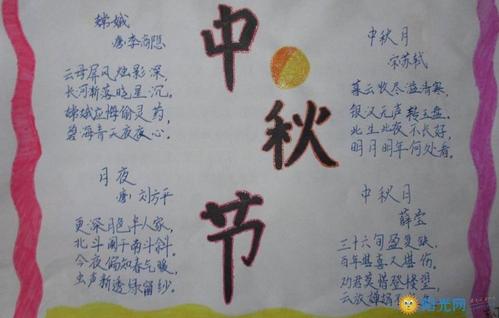 中秋节
嫦娥
唐·李商隐
云母屏风烛影深,
长河渐落晓星沉。
嫦娥应悔偷灵药,
碧海青天夜夜心。
月夜
唐 刘方平
更深月色半人家,
北斗阑干南斗斜。
今夜偏知春气暖,
虫声新透绿 纱。
中秋月
宋 苏轼
暮云收尽溢清寒
银汉无声转玉盘,
此生此夜不长好,
明月明年何处看。
中秋月
薛莹
三十六旬盈复缺,
百年堪喜又堪伤。
劝君莫惜登楼望,
云放婵娟
光网